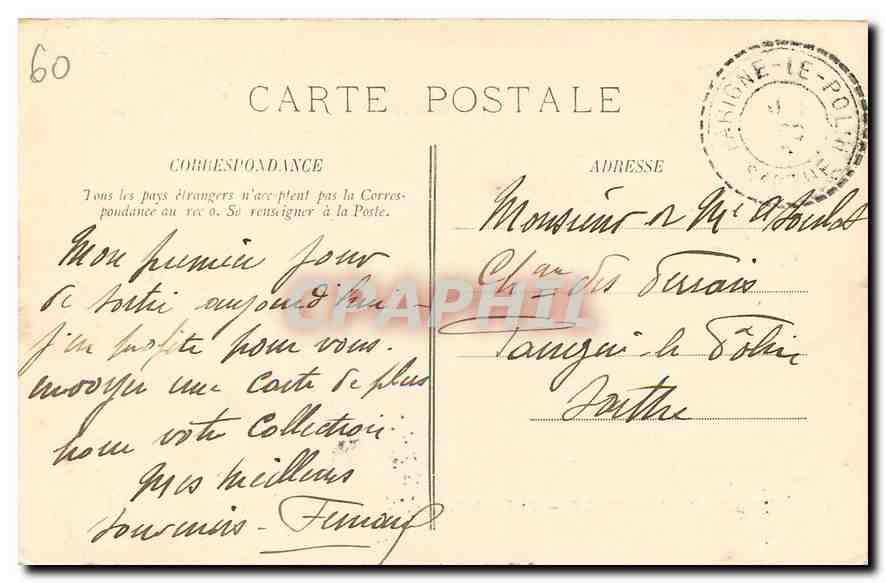 60
CARTE POSTALE
CORRESPONDANCE
Tous les pays étrangers n'acceptent pas la Corres-
pondance au rec o. Se renseigner à la Poste.
Mon premier jour
de sortie aujourd'hui
j'en profite pour vous
envoyer une carte de plus
pour votre Collection.
Mes meilleurs
souvenirs - Fernand
ADRESSE
PARIGNE-LE-POLIN
SARTHE
Monsieur et Me
Chau des Perrais
Parigné le Pôlin
Sarthe
CPAPHIL